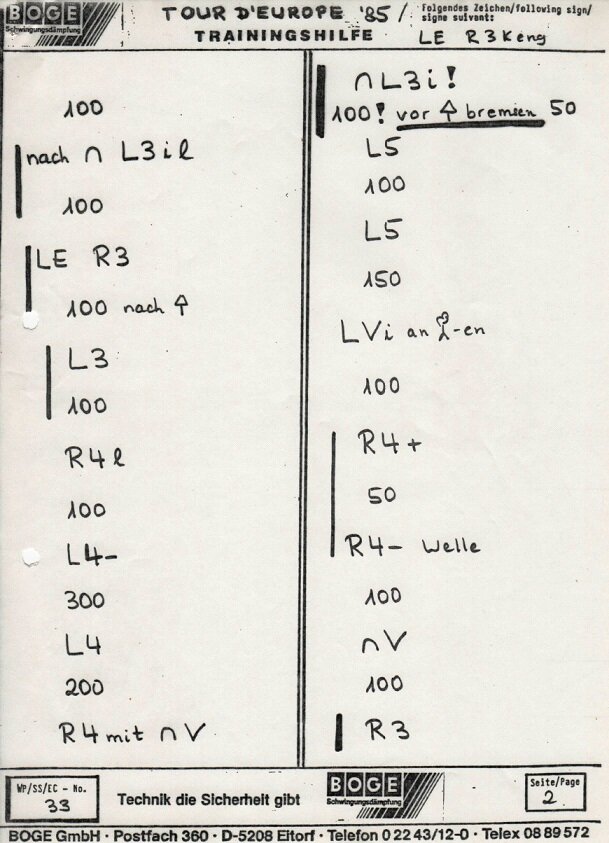 BOGE
Schwingungsdämpfung
TOUR D'EUROPE '85/
TRAININGSHILFE
Folgendes Zeichen/following sign/
signe suivant:
LE R3 Keng
100
nach ∩ L3il
100
LE R3
100 nach
L3
100
R4l
100
L4-
300
L4
200
R4 mit ∩ V
∩ L3i!
100! vor bremsen 50
L5
100
L5
150
LVi an -en
100
R4+
50
R4- Welle
100
∩V
100
R3
WP/SS/EC - No.
33
Technik die Sicherheit gibt
BOGE
Schwingungsdämpfung
Seite/Page
2
BOGE GmbH · Postfach 360 · D-5208 Eitorf · Telefon 0 22 43/12-0 · Telex 08 89 572